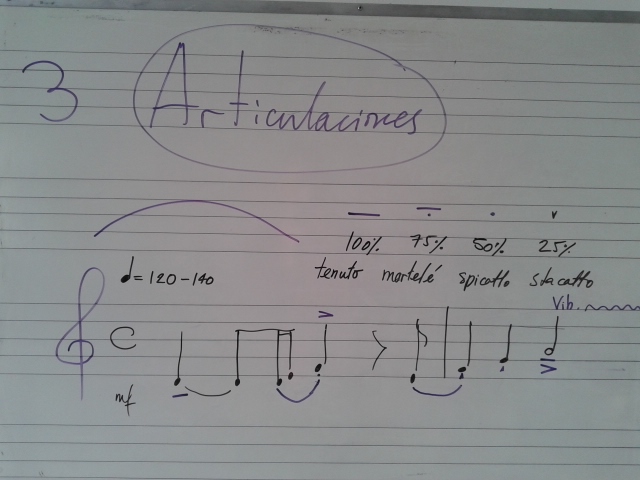 3 Articulaciones
100% 75% 50% 25%
♩=120-140 tenuto martelé spicatto stacatto
Vib.
C
mf